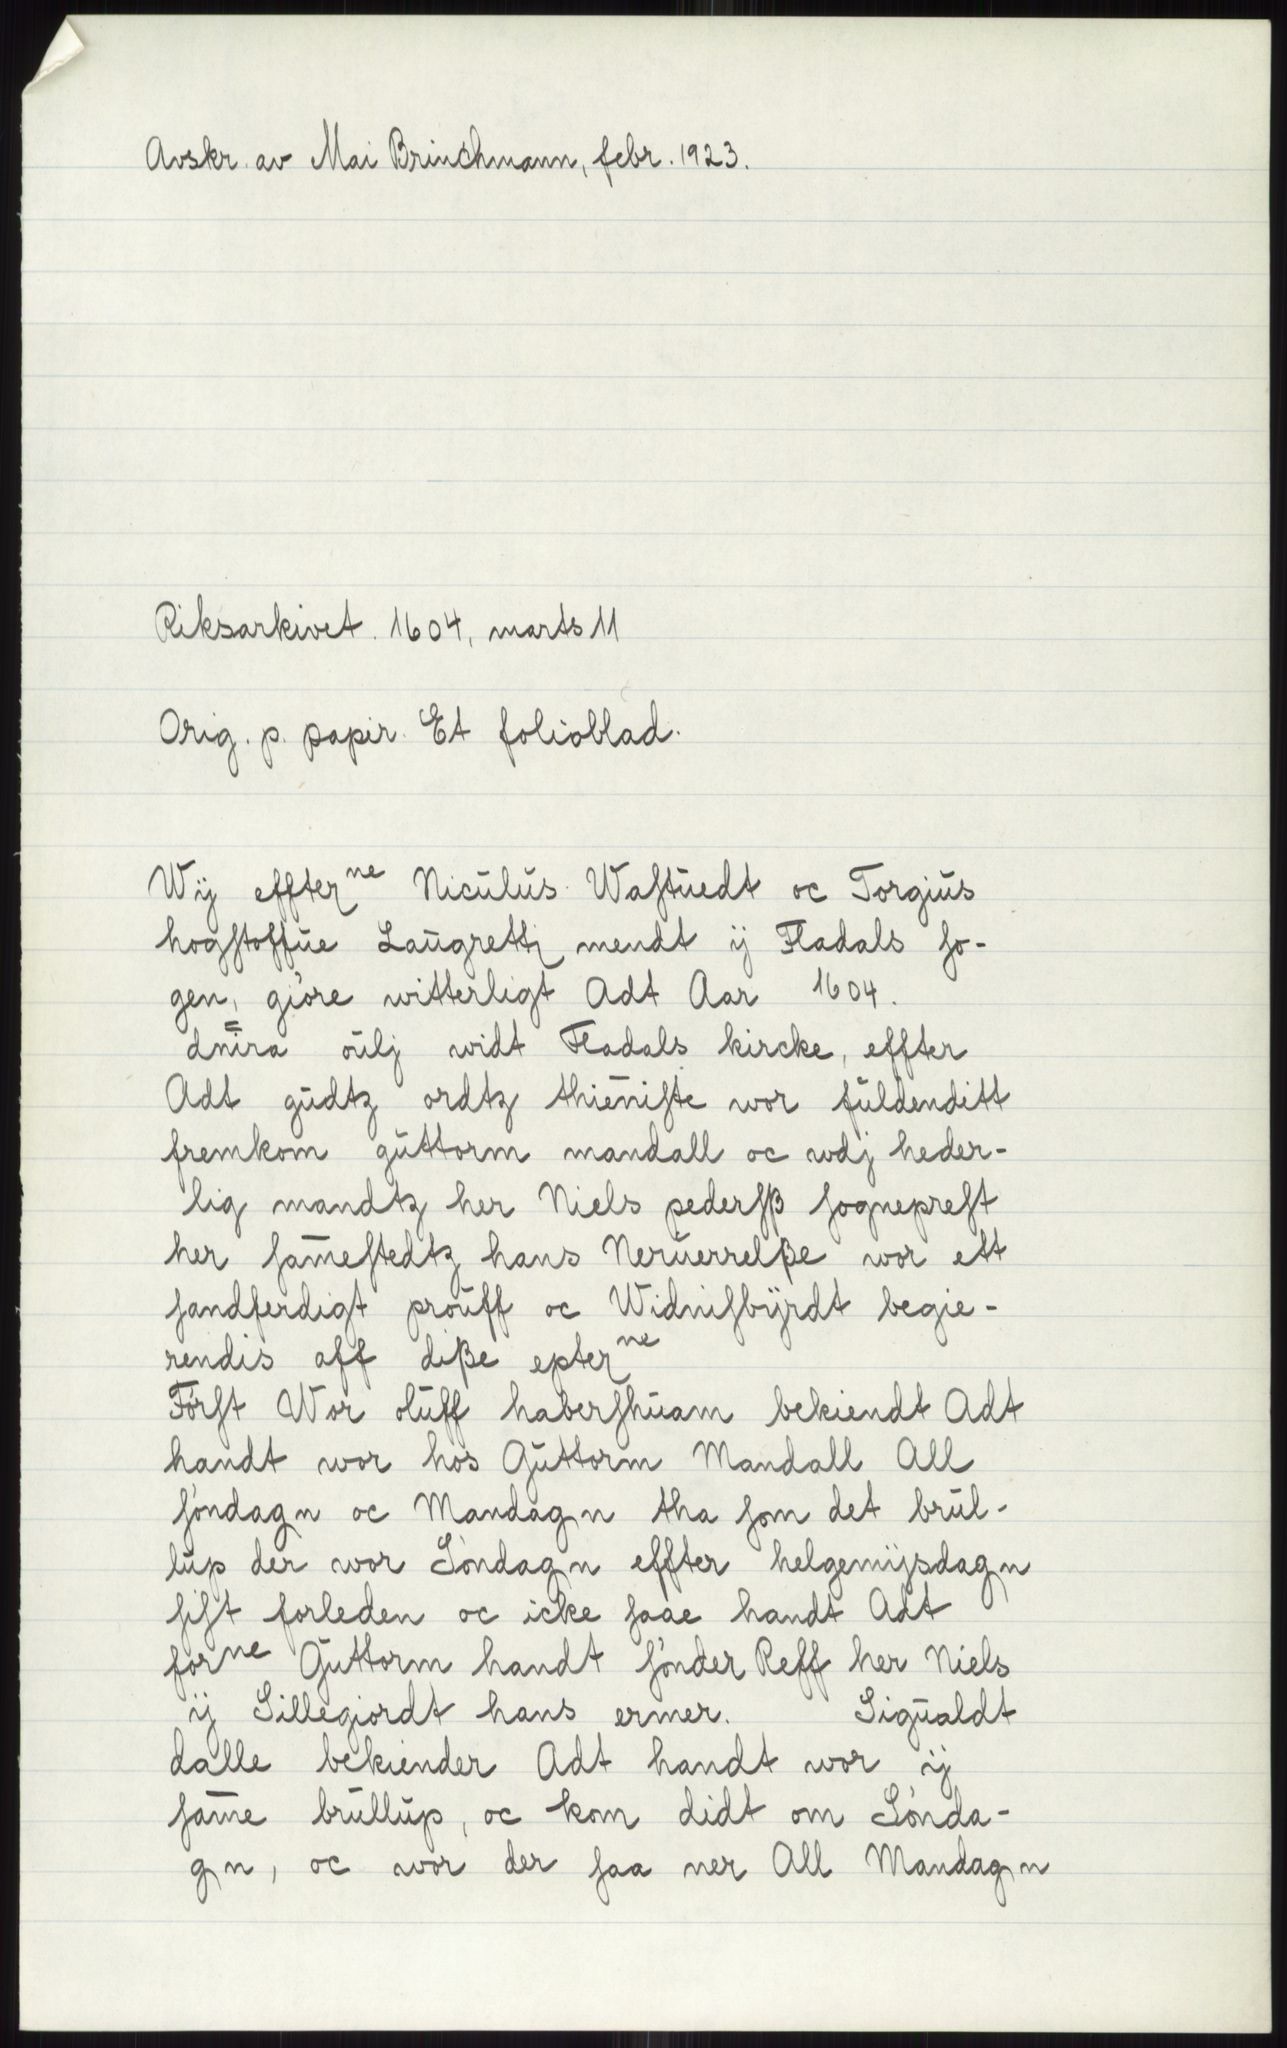 Avskr. av Mai Brinchmann, febr. 1923.
Riksarkivet. 1604, marts 11
Orig. p. papir. Et folioblad.
Wÿ effterⁿᵉ Niculus Waſtuedt oc Torgius
hogſtoffue Laugrettz mendt ÿ Fladals ſo-
gen, giöre witterligt Adt Aar 1604.
dn̄ira oulj widt Fladals kircke, effter
Adt gudtz ordtz thieniſte wor fuldenditt
fremkom guttorm mandall oc udj heder-
lig mandtz her Niels pederſß ſognepreſt
her ſam̄eſtedtz hans Neruerrelße wor ett
ſandferdigt prouff oc Widniſbÿrdt begie-
rendis aff diße epterⁿᵉ
Förſt Wor oluff haberſhuam bekiendt Adt
handt wor hos Guttorm Mandall All
ſöndagn oc Mandagn tha ſom det brul-
lup der wor Söndagn effter helgemijsdagn
ſiſt forleden oc icke ſaae handt Adt
forⁿᵉ Guttorm handt ſönder Reff her Niels
ÿ Sillegiordt hans ermer. Sigualdt
dalle bekiender Adt handt wor ÿ
ſam̄e brullup, oc kom didt om Sönda-
gn, oc wor der ſaa ner All Mandagn